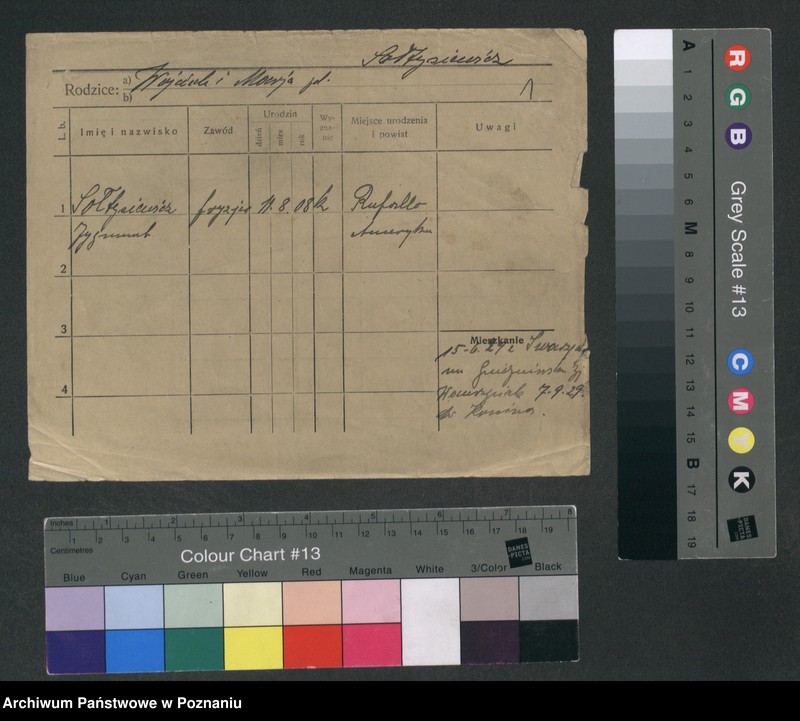 Sołtysiewicz
Rodzice: a) Wojciech i Marja
b)
L. b.
Imię i nazwisko
Zawód
Urodzin
dzień
mies
rok
Wy-
zna-
nie
Miejsce urodzenia
i powiat
Uwagi
1 Sołtysiewicz fryzjer 11. 8. 08 k Buffallo
Zygmunt Ameryka
2
3
Mieszkanie
15-6.29 z Swarzędz
4
Henryniak 7.9.29.
do Konina.
A 1 2 3 4 5 6 M 8 9 10 11 12 13 14 15 B 17 18 19
R G B
Grey Scale #13
C M Y K
DANES
PICTA
.COM
Inches 1 2 3 4 5 6 7 8
Centimetres 1 2 3 4 5 6 7 8 9 10 11 12 13 14 15 16 17 18 19
Colour Chart #13
DANES
PICTA
.COM
Blue Cyan Green Yellow Red Magenta White 3/Color Black
Archiwum Państwowe w Poznaniu